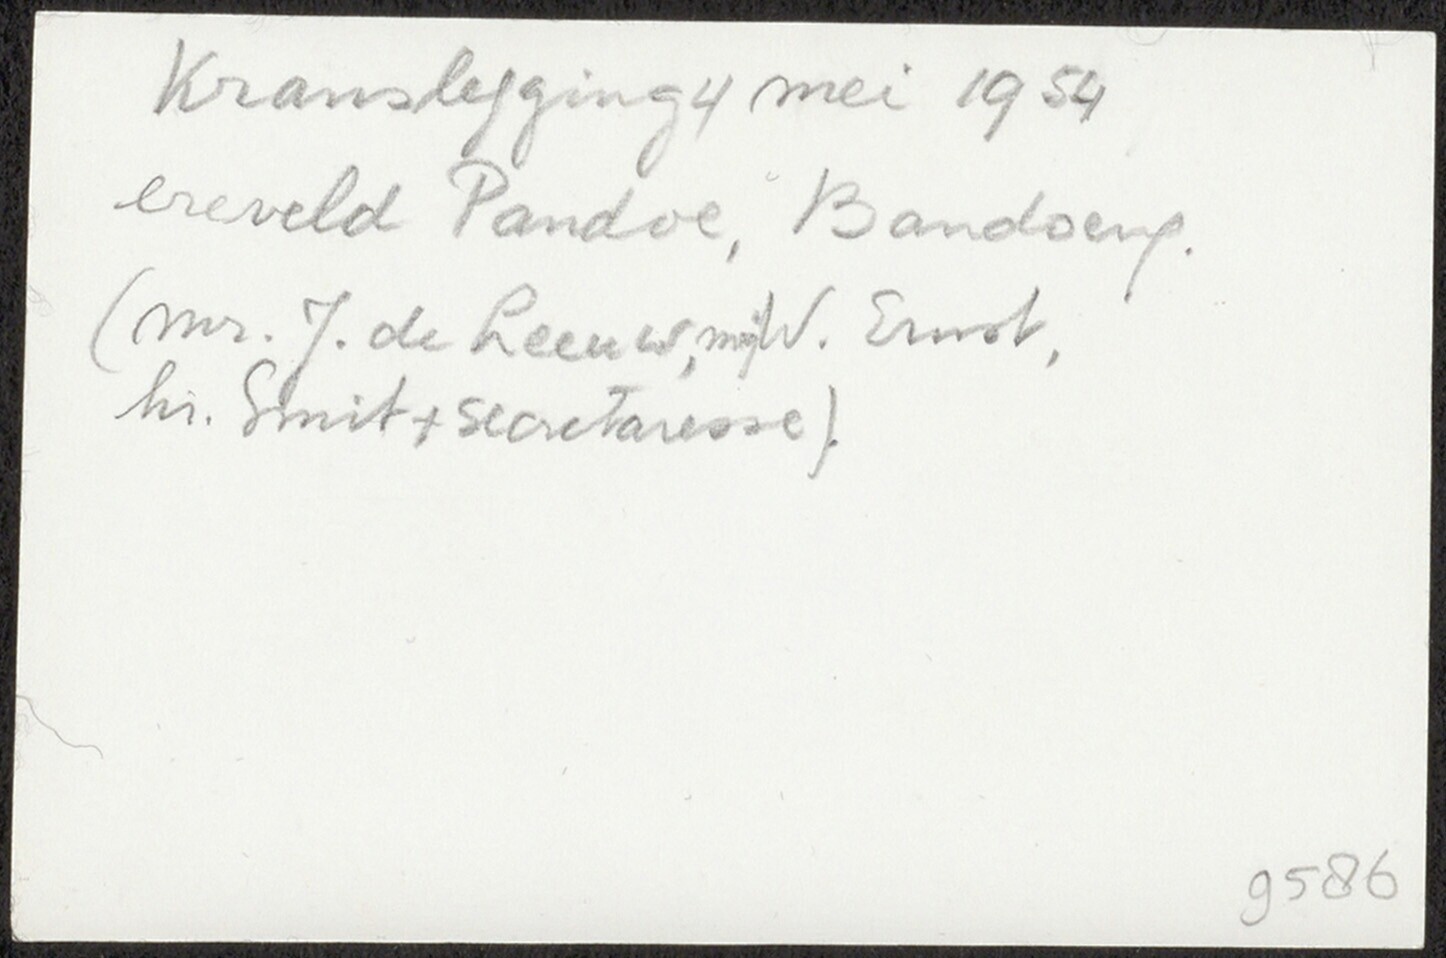 Kranslegging 4 mei 1954
ereveld Pandoe, Bandoeng.
(mr. J. de Leeuw, mij W. Ernst,
hr. Smit + secretaresse).
9586